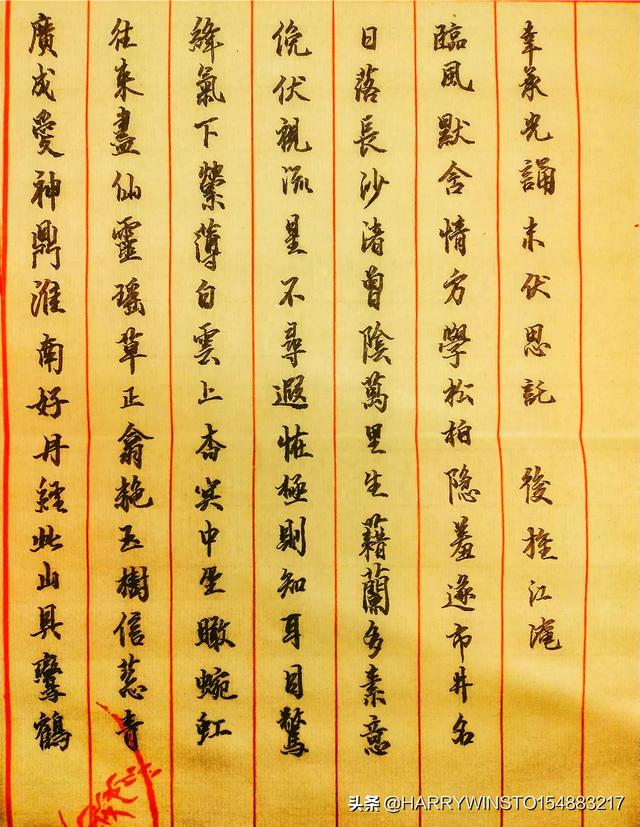 幸承光誦末伏思託 後旌江淹
臨風默含情方學松柏隐羞逐市井名
日落長沙渚曾陰萬里生藉蘭多素意
俛伏視流星不尋遐怪極則知耳目驚
絳氣下縈薄白雲上杳冥中坐瞰蜿虹
往来盡仙靈瑤草正翕赩玉樹信葱青
廣成愛神鼎淮南好丹經此山具鸞鶴
头条 @HARRYWINSTO154883217